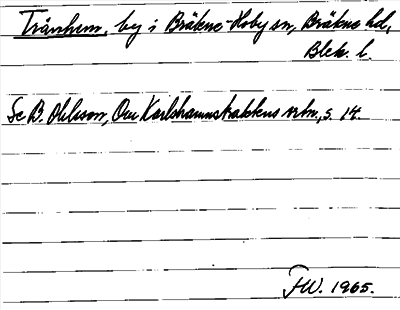 Tråvhem, by i Bräkne-Hoby sn, Bräkne hd,
Blek. l.
Se B. Ohlsson, Om Karlshamnstraktens ortn., s. 14.
FW. 1965.